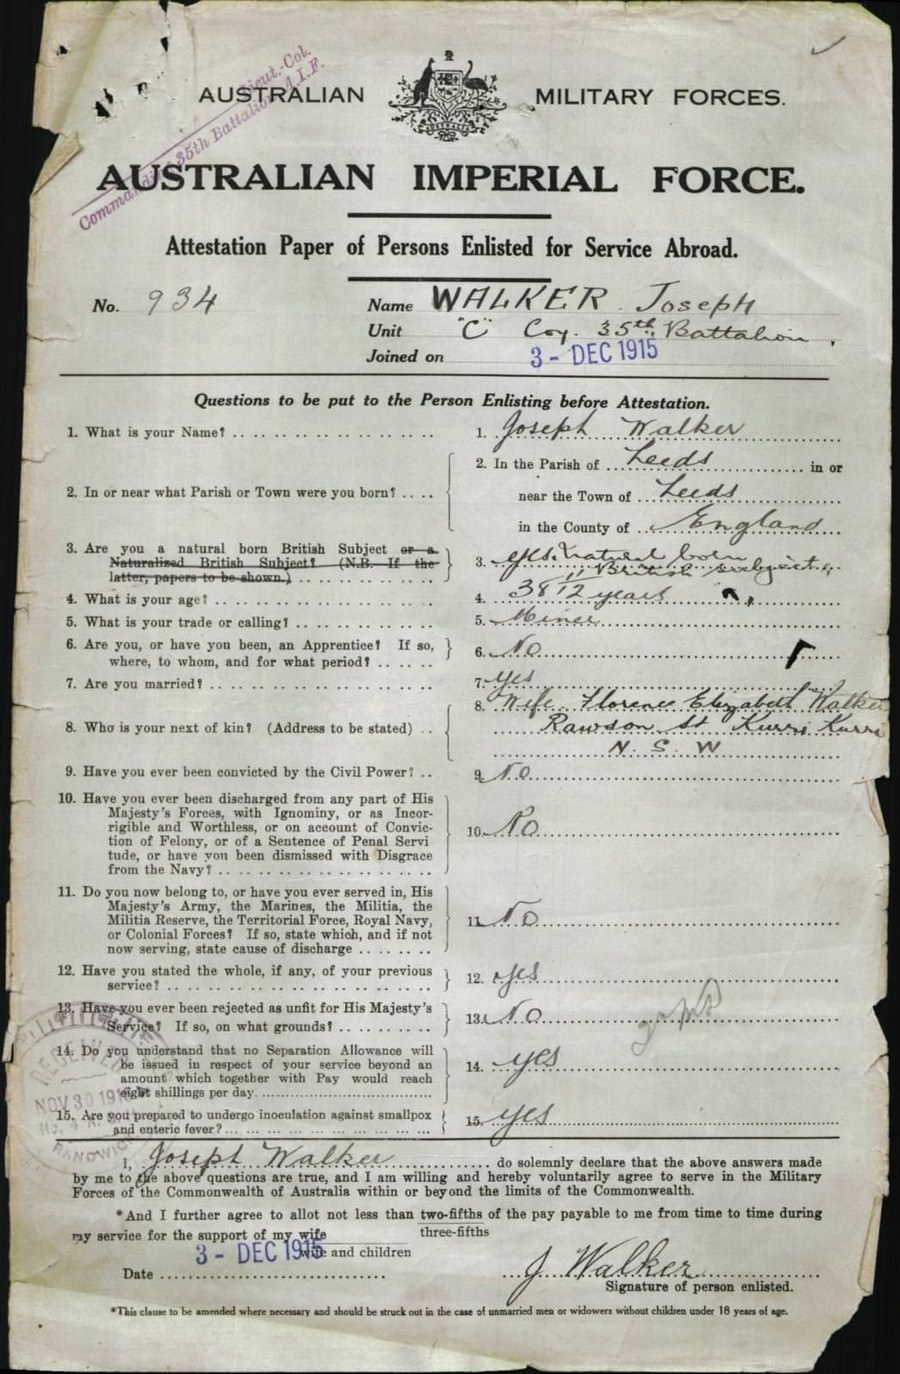 Lieut.-Col.
Commanding 35th Battalion A.I.F.
AUSTRALIAN MILITARY FORCES.
AUSTRALIAN IMPERIAL FORCE.
Attestation Paper of Persons Enlisted for Service Abroad.
No. 934 Name WALKER Joseph
Unit "C" Coy. 35th Battalion.
Joined on 3 - DEC 1915
Questions to be put to the Person Enlisting before Attestation.
1. What is your Name? 1. Joseph Walker
2. In or near what Parish or Town were you born? 2. In the Parish of Leeds in or
near the Town of Leeds
in the County of England
3. Are you a natural born British Subject or a
Naturalized British Subject? (N.B. If the
latter, papers to be shown.)
3. yes. Natural born
British subject
4. What is your age? 4. 38 11/12 years
5. What is your trade or calling? 5. Miner
6. Are you, or have you been, an Apprentice? If so,
where, to whom, and for what period? 6. No
7. Are you married? 7. yes
8. Who is your next of kin? (Address to be stated) 8. Wife Florence Elizabeth Walker
Rawson St Kurri Kurri
N. S. W
9. Have you ever been convicted by the Civil Power? 9. No
10. Have you ever been discharged from any part of His
Majesty's Forces, with Ignominy, or as Incor-
rigible and Worthless, or on account of Convic-
tion of Felony, or of a Sentence of Penal Servi
tude, or have you been dismissed with Disgrace
from the Navy? 10. No
11. Do you now belong to, or have you ever served in, His
Majesty's Army, the Marines, the Militia, the
Militia Reserve, the Territorial Force, Royal Navy,
or Colonial Forces? If so, state which, and if not
now serving, state cause of discharge 11. No
12. Have you stated the whole, if any, of your previous
service? 12. yes
13. Have you ever been rejected as unfit for His Majesty's
Service? If so, on what grounds? 13. No
14. Do you understand that no Separation Allowance will
be issued in respect of your service beyond an
amount which together with Pay would reach
eight shillings per day. 14. yes
15. Are you prepared to undergo inoculation against smallpox
and enteric fever? 15. yes
RECEIVED
NOV 30 191
RANDWICK
I, Joseph Walker do solemnly declare that the above answers made
by me to the above questions are true, and I am willing and hereby voluntarily agree to serve in the Military
Forces of the Commonwealth of Australia within or beyond the limits of the Commonwealth.
*And I further agree to allot not less than two-fifths of the pay payable to me from time to time during
three-fifths
my service for the support of my wife
wife and children
Date 3 - DEC 1915
J Walker
Signature of person enlisted.
*This clause to be amended where necessary and should be struck out in the case of unmarried men or widowers without children under 18 years of age.